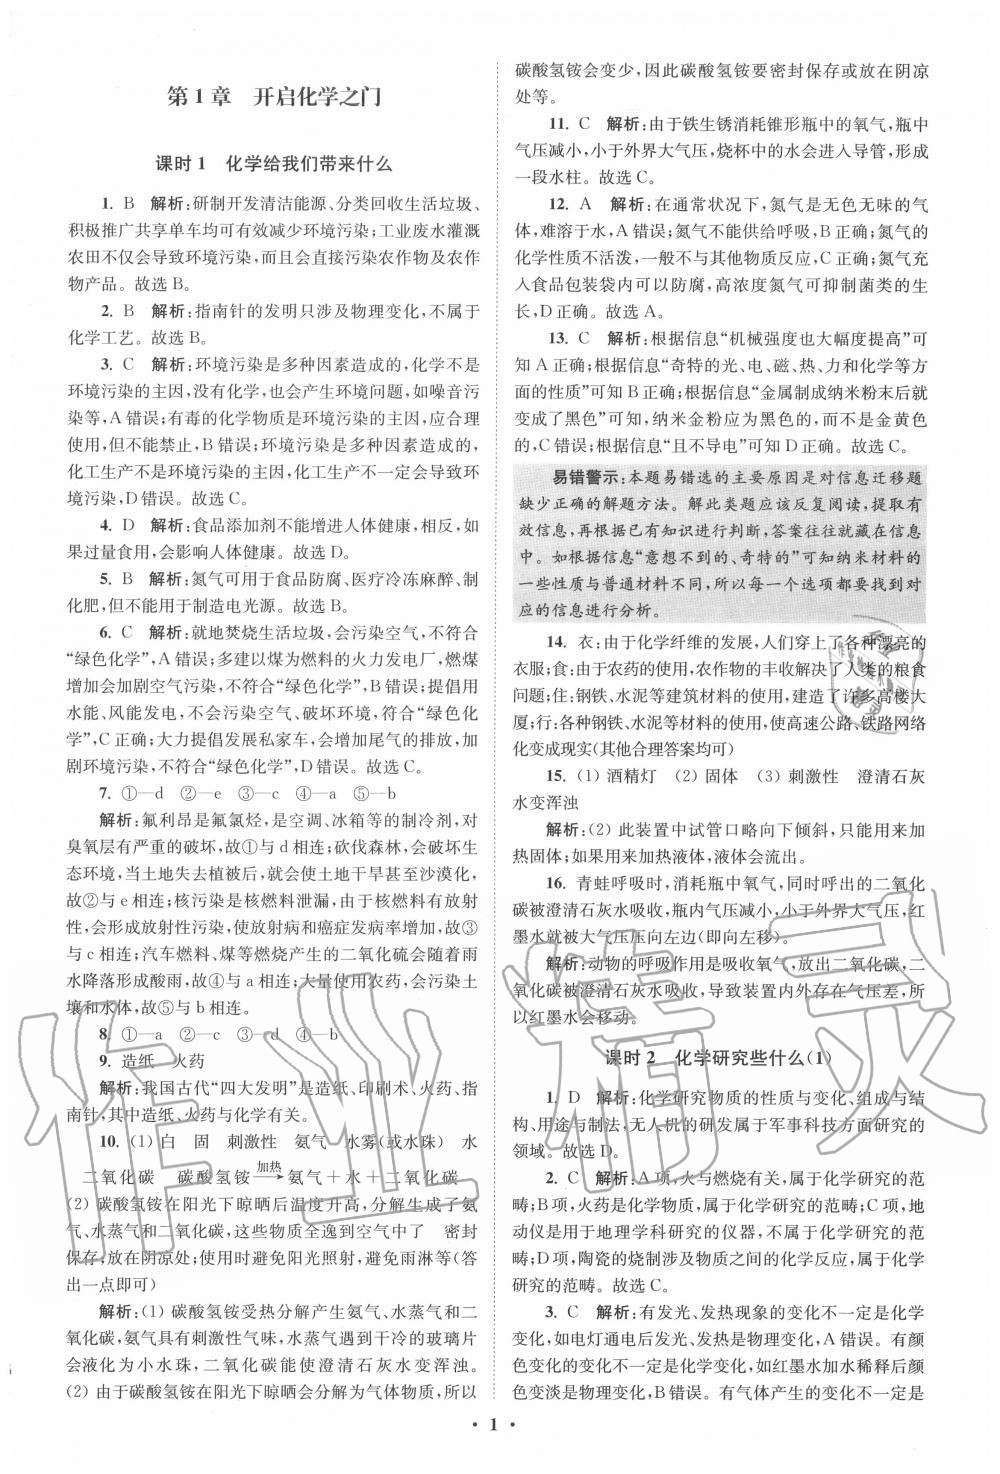 第1章 开启化学之门
课时1 化学给我们带来什么
1. B 解析:研制开发清洁能源、分类回收生活垃圾、
积极推广共享单车均可有效减少环境污染;工业废水灌溉
农田不仅会导致环境污染,而且会直接污染农作物及农作
物产品。故选B。
2. B 解析:指南针的发明只涉及物理变化,不属于
化学工艺。故选B。
3. C 解析:环境污染是多种因素造成的,化学不是
环境污染的主因,没有化学,也会产生环境问题,如噪音污
染等,A错误;有毒的化学物质是环境污染的主因,应合理
使用,但不能禁止,B错误;环境污染是多种因素造成的,
化工生产不是环境污染的主因,化工生产不一定会导致环
境污染,D错误。故选C。
4. D 解析:食品添加剂不能增进人体健康,相反,如
果过量食用,会影响人体健康。故选D。
5. B 解析:氮气可用于食品防腐、医疗冷冻麻醉、制
化肥,但不能用于制造电光源。故选B。
6. C 解析:就地焚烧生活垃圾,会污染空气,不符合
“绿色化学”,A错误;多建以煤为燃料的火力发电厂,燃煤
增加会加剧空气污染,不符合“绿色化学”,B错误;提倡用
水能、风能发电,不会污染空气、破坏环境,符合“绿色化
学”,C正确;大力提倡发展私家车,会增加尾气的排放,加
剧环境污染,不符合“绿色化学”,D错误。故选C。
7. ①—d ②—e ③—c ④—a ⑤—b
解析:氟利昂是氟氯烃,是空调、冰箱等的制冷剂,对
臭氧层有严重的破坏,故①与d相连;砍伐森林,会破坏生
态环境,当土地失去植被后,就会使土地干旱甚至沙漠化,
故②与e相连;核污染是核燃料泄漏,由于核燃料有放射
性,会形成放射性污染,使放射病和癌症发病率增加,故③
与c相连;汽车燃料、煤等燃烧产生的二氧化硫会随着雨
水降落形成酸雨,故④与a相连;使用农药,会污染土
壤和水体,故⑤与b相连。
8. ①—a ②—c ③—d ④—b
9. 造纸 火药
解析:我国古代“四大发明”是造纸、印刷术、火药、指
南针,其中造纸、火药与化学有关。
10. (1) 白 固 刺激性 氨气 水雾(或水珠) 水
二氧化碳 碳酸氢铵 加热→ 氨气+水+二氧化碳
(2) 碳酸氢铵在阳光下晾晒后温度升高,分解生成了氨
气、水蒸气和二氧化碳,这些物质全逸到空气中了 密封
保存;放在阴凉处;使用时避免阳光照射,避免雨淋等(答
出一点即可)
解析:(1) 碳酸氢铵受热分解产生氨气、水蒸气和二
氧化碳,氨气具有刺激性气味,水蒸气遇到干冷的玻璃片
会液化为小水珠,二氧化碳能使澄清石灰水变浑浊。
(2) 由于碳酸氢铵在阳光下晾晒会分解为气体物质,所以
碳酸氢铵会变少,因此碳酸氢铵要密封保存或放在阴凉
处等。
11. C 解析:由于铁生锈消耗锥形瓶中的氧气,瓶中
气压减小,小于外界大气压,烧杯中的水会进入导管,形成
一段水柱。故选C。
12. A 解析:在通常状况下,氮气是无色无味的气
体,难溶于水,A错误;氮气不能供给呼吸,B正确;氮气的
化学性质不活泼,一般不与其他物质反应,C正确;氮气充
入食品包装袋内可以防腐,高浓度氮气可抑制菌类的生
长,D正确。故选A。
13. C 解析:根据信息“机械强度也大幅度提高”可
知A正确;根据信息“奇特的光、电、磁、热、力和化学等方
面的性质”可知B正确;根据信息“金属制成纳米粉末后就
变成了黑色”可知,纳米金粉应为黑色的,而不是金黄色
的,C错误;根据信息“且不导电”可知D正确。故选C。
易错警示:本题易错选的主要原因是对信息迁移题
缺少正确的解题方法。解此类题应该反复阅读,提取有
效信息,再根据已有知识进行判断,答案往往就藏在信息
中。如根据信息“意想不到的、奇特的”可知纳米材料的
一些性质与普通材料不同,所以每一个选项都要找到对
应的信息进行分析。
14. 衣:由于化学纤维的发展,人们穿上了各种漂亮的
衣服;食:由于农药的使用,农作物的丰收解决了人类的粮食
问题;住:钢铁、水泥等建筑材料的使用,建造了许多高楼大
厦;行:各种钢铁、水泥等材料的使用,使高速公路、铁路网络
化变成现实(其他合理答案均可)
15. (1) 酒精灯 (2) 固体 (3) 刺激性 澄清石灰
水变浑浊
解析:(2) 此装置中试管口略向下倾斜,只能用来加
热固体;如果用来加热液体,液体会流出。
16. 青蛙呼吸时,消耗瓶中氧气,同时呼出的二氧化
碳被澄清石灰水吸收,瓶内气压减小,小于外界大气压,红
墨水就被大气压压向左边(即向左移)。
解析:动物的呼吸作用是吸收氧气,放出二氧化碳,二
氧化碳被澄清石灰水吸收,导致装置内外存在气压差,所
以红墨水会移动。
课时2 化学研究些什么(1)
1. D 解析:化学研究物质的性质与变化、组成与结
构、用途与制法,无人机的研发属于军事科技方面研究的
领域。故选D。
2. C 解析:A项,火与燃烧有关,属于化学研究的范
畴;B项,火药是化学物质,属于化学研究的范畴;C项,地
动仪是用于地理学科研究的仪器,不属于化学研究的范
畴;D项,陶瓷的烧制涉及物质之间的化学反应,属于化学
研究的范畴。故选C。
3. C 解析:有发光、发热现象的变化不一定是化学
变化,如电灯通电后发光、发热是物理变化,A错误。有颜
色变化的变化不一定是化学变化,如红墨水加水稀释后颜
色变淡是物理变化,B错误。有气体产生的变化不一定是
• 1 •
作业精灵